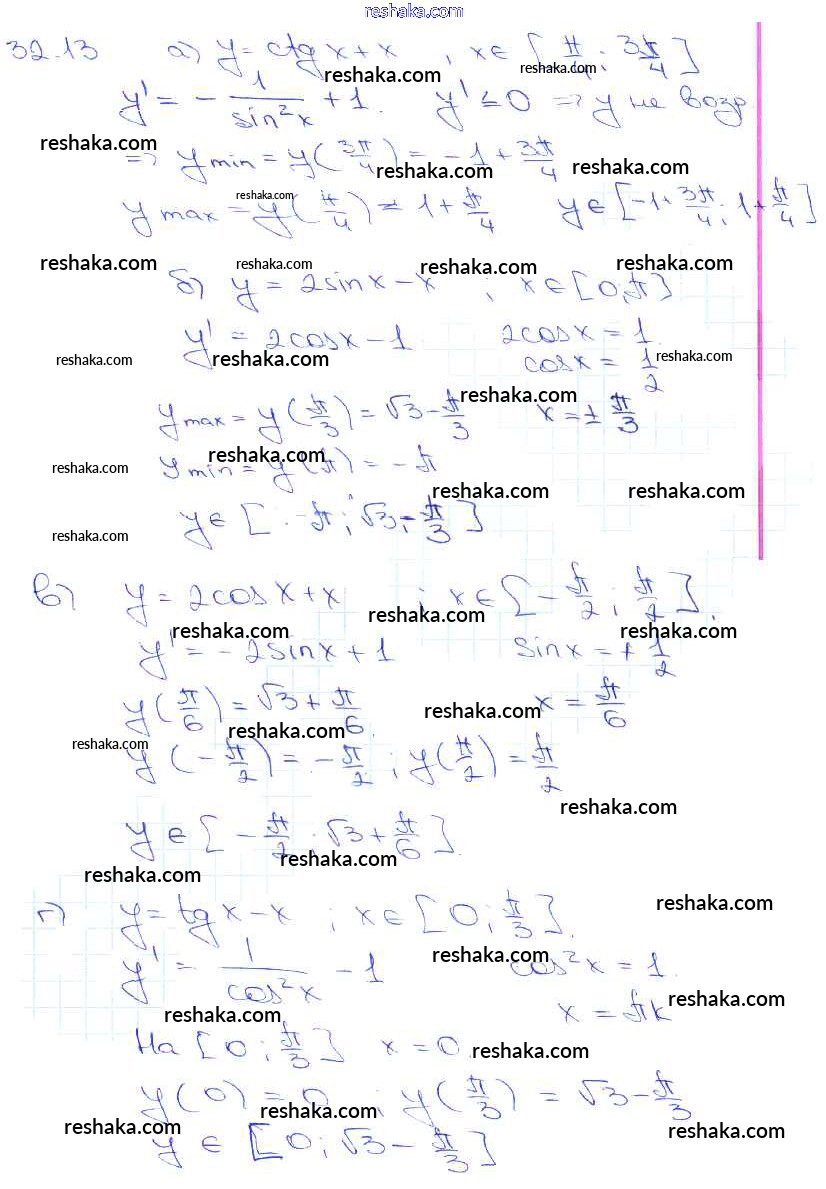 reshaka.com
32.13 а) y = ctg x + x ; x ∈ [π/4; 3π/4]
reshaka.com reshaka.com
y' = - 1/sin²x + 1. y' ≤ 0 ⇒ y не возр
reshaka.com reshaka.com
⇒ y min = y(3π/4) = -1 + 3π/4
reshaka.com reshaka.com
reshaka.com
y max = y(π/4) = 1 + π/4 y ∈ [-1 + 3π/4; 1 + π/4]
reshaka.com reshaka.com reshaka.com reshaka.com
б) y = 2sin x - x ; x ∈ [0; π]
y' = 2cos x - 1 2cos x = 1
reshaka.com reshaka.com cos x = 1/2 reshaka.com
reshaka.com
y max = y(π/3) = √3 - π/3 x = ± π/3
reshaka.com reshaka.com
y min = y(π) = - π
reshaka.com reshaka.com
y ∈ [-π; √3 - π/3]
reshaka.com
в) y = 2cos x + x ; x ∈ [-π/2; π/2].
reshaka.com
reshaka.com reshaka.com
y' = -2sin x + 1 sin x = + 1/2
y(π/6) = √3 + π/6. x = π/6
reshaka.com reshaka.com
reshaka.com
y(-π/2) = -π/2; y(π/2) = π/2
reshaka.com
y ∈ [-π/2; √3 + π/6].
reshaka.com
reshaka.com
г) y = tg x - x ; x ∈ [0; π/3].
reshaka.com
reshaka.com
y' = 1/cos²x - 1 cos²x = 1.
x = πk reshaka.com
reshaka.com
На [0; π/3] x = 0. reshaka.com
y(0) = 0 ; y(π/3) = √3 - π/3
reshaka.com
reshaka.com reshaka.com
y ∈ [0; √3 - π/3]